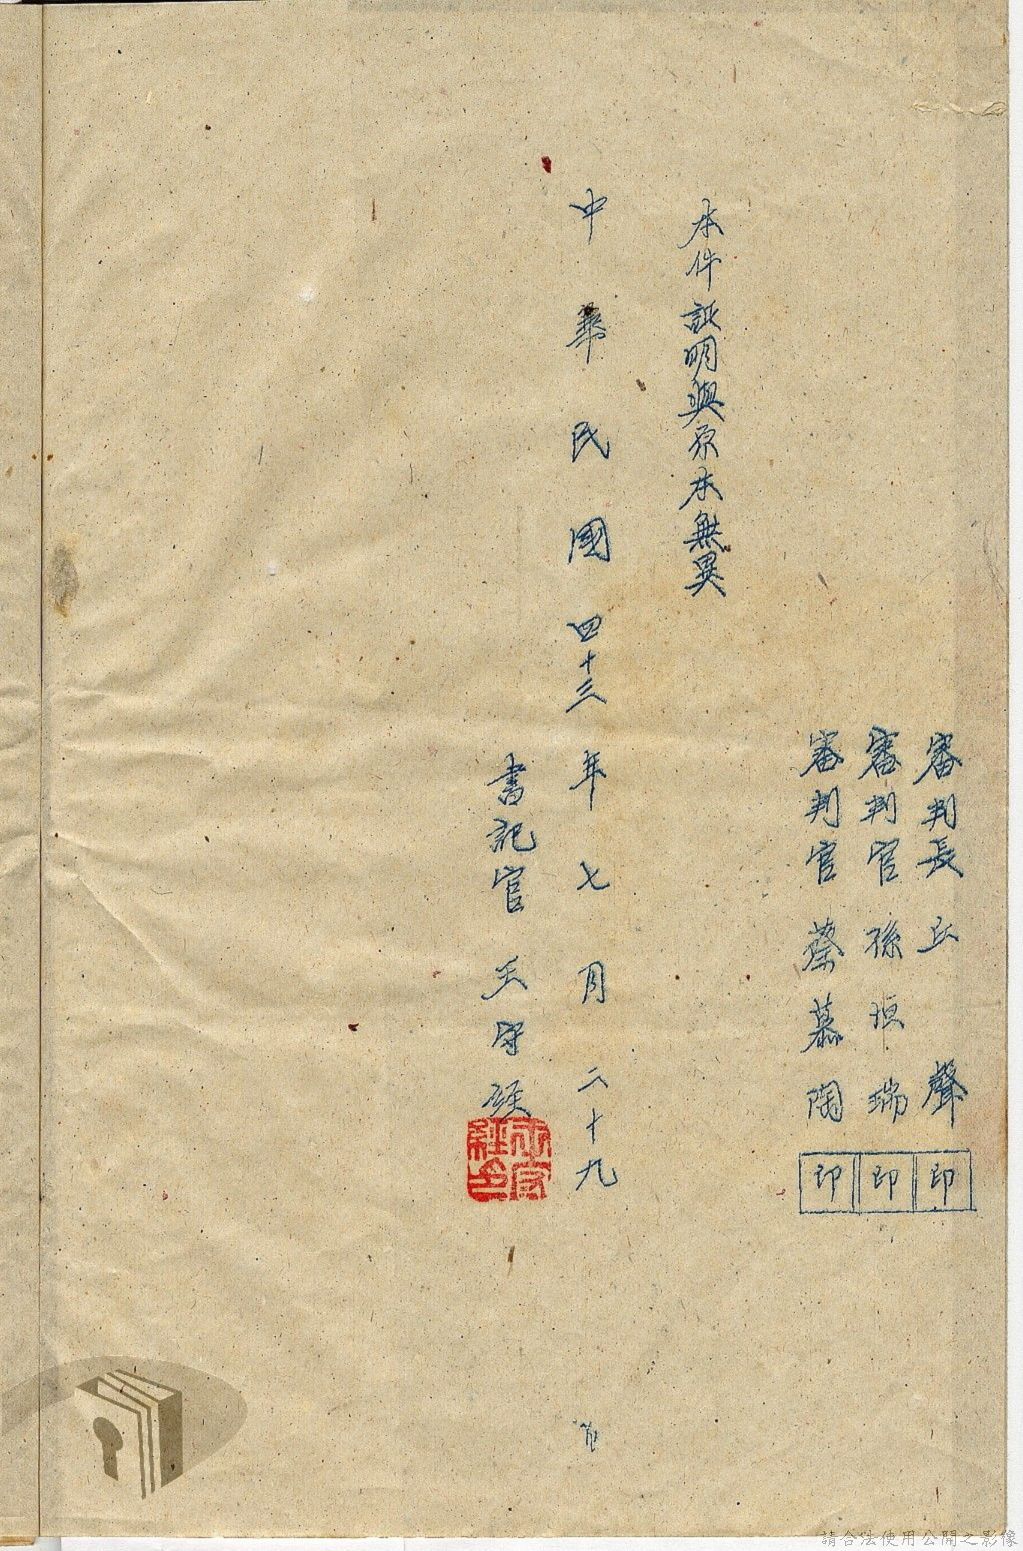 審判長 丘 聲 印
審判官 孫垣瑞 印
審判官 蔡慕陶 印
本件証明與原本無異
中華民國四十三年七月二十九日
書記官 王守經
請合法使用公開之影像